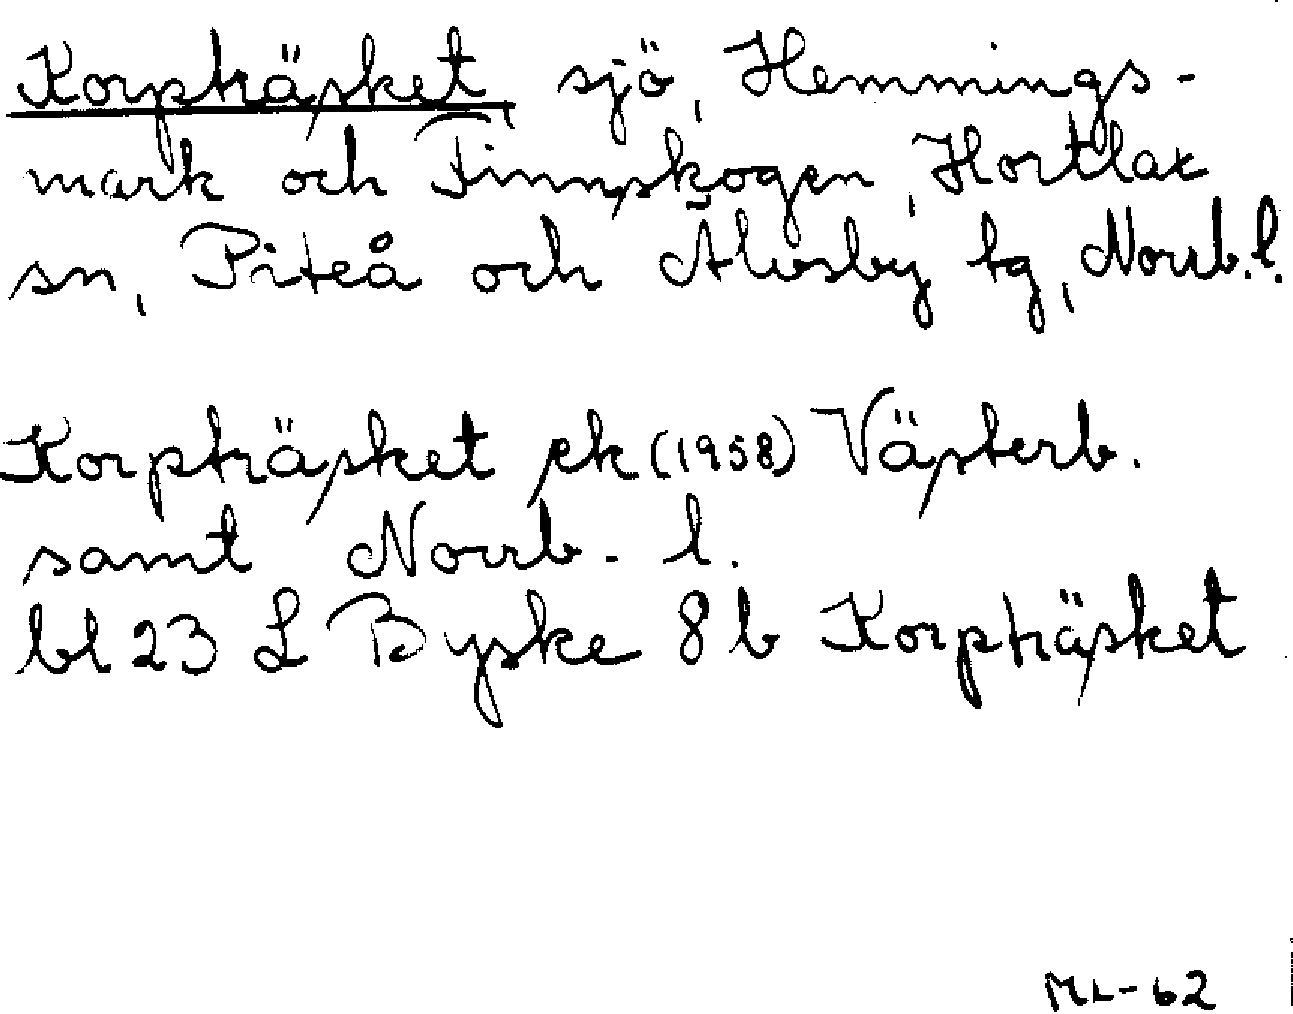 Korpträsket, sjö, Hemmings-
mark och Finnskogen, Hortlax
sn, Piteå och Älvsby tg, Norrb.l.
Korpträsket ek (1958) Västerb.
samt Norrb. l.
bl 23 L Byske 8 b Korpträsket
ML-62